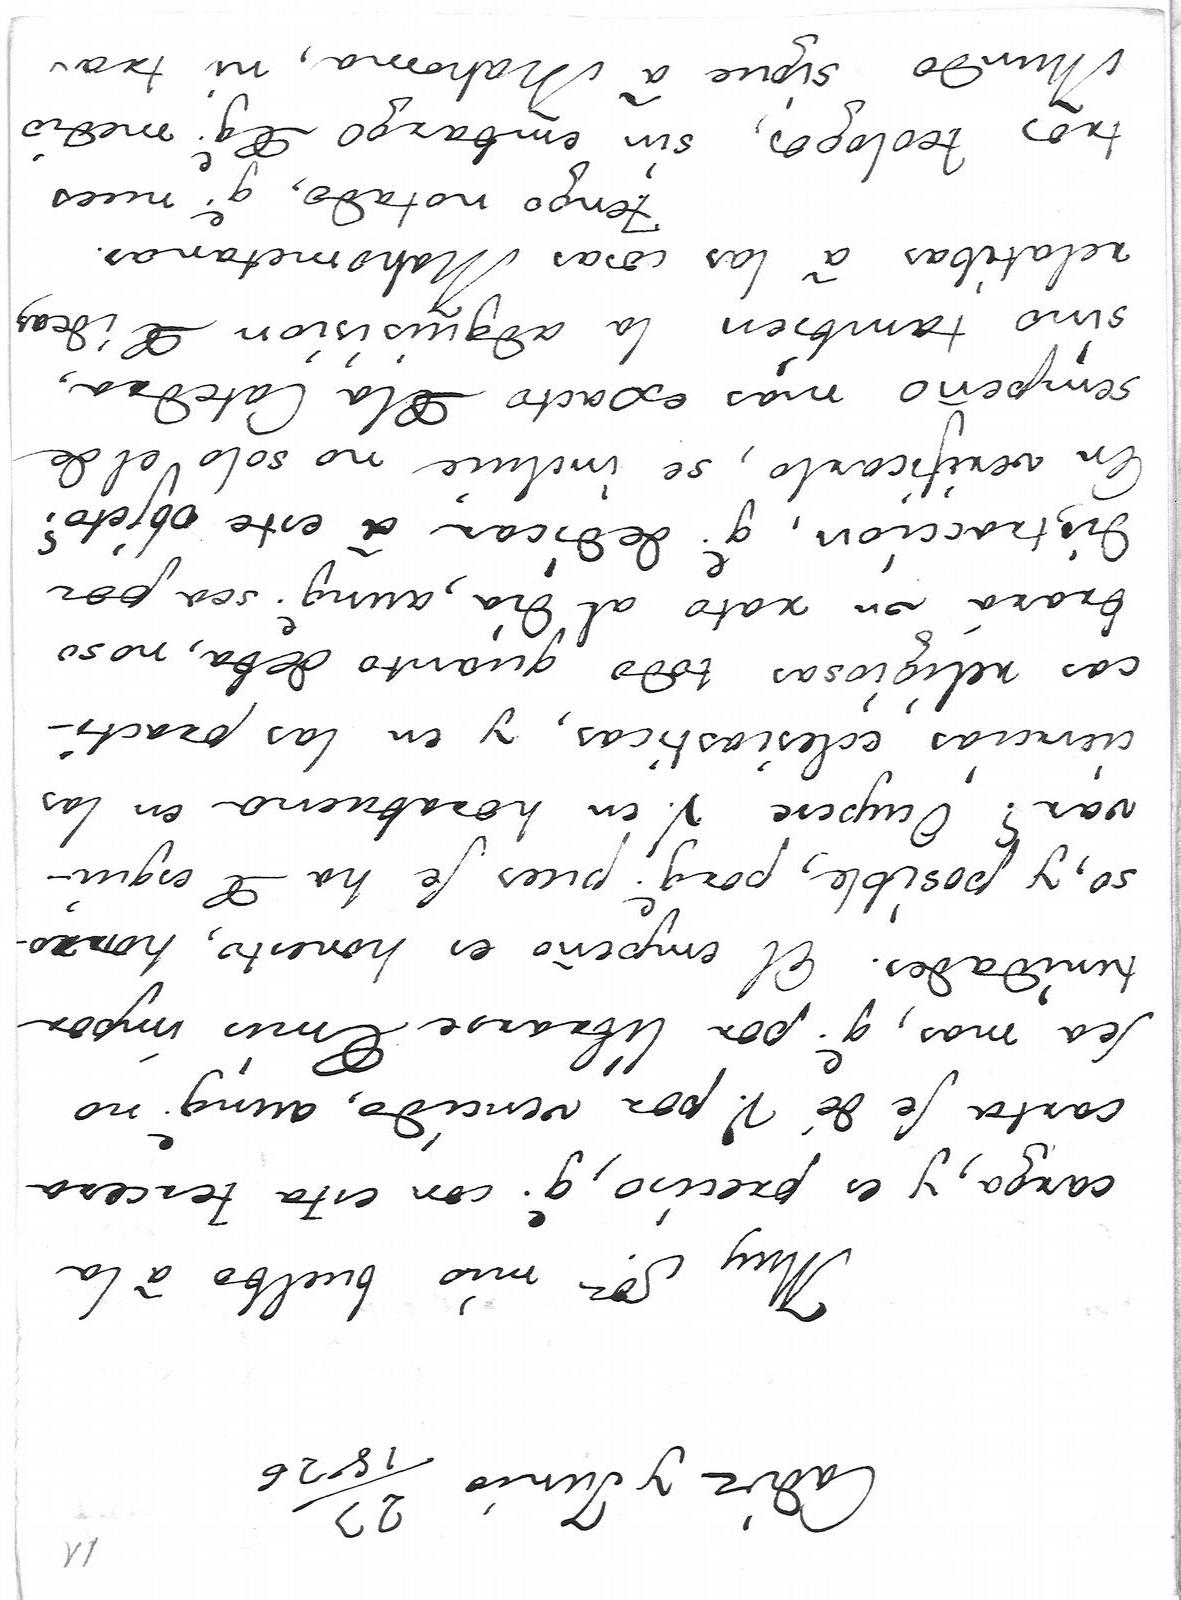 Cadiz y Junio 23/1826
Muy Sor. mio buelbo à la
carga, y es preciso, qe. con esta tercera
carta se dé V. por vencido, aunqe. no
sea mas, qe. por librarse Emis impor
tunidades. El empeño es honesto, honrro-
so, y posible, porqe. pues se ha E esqui-
var? Ocupese V. en horabuena en las
ciencias eclesiasticas, y en las practi-
cas religiosas todo quanto deba, noso
brará un rato al dia, aunqe. sea por
distraccion, qe. dedicar à este objeto?
En verificarlo, se incluie no solo el de
sempeño mas exacto Ela Catedra,
sino tambien la adquisision E ideas
relatibas à las cosas Mahometanas.
Tengo notado, qe. nues
tros teologos, sin embargo Eqe. medio
Mundo sigue à Mahoma, ni tra-